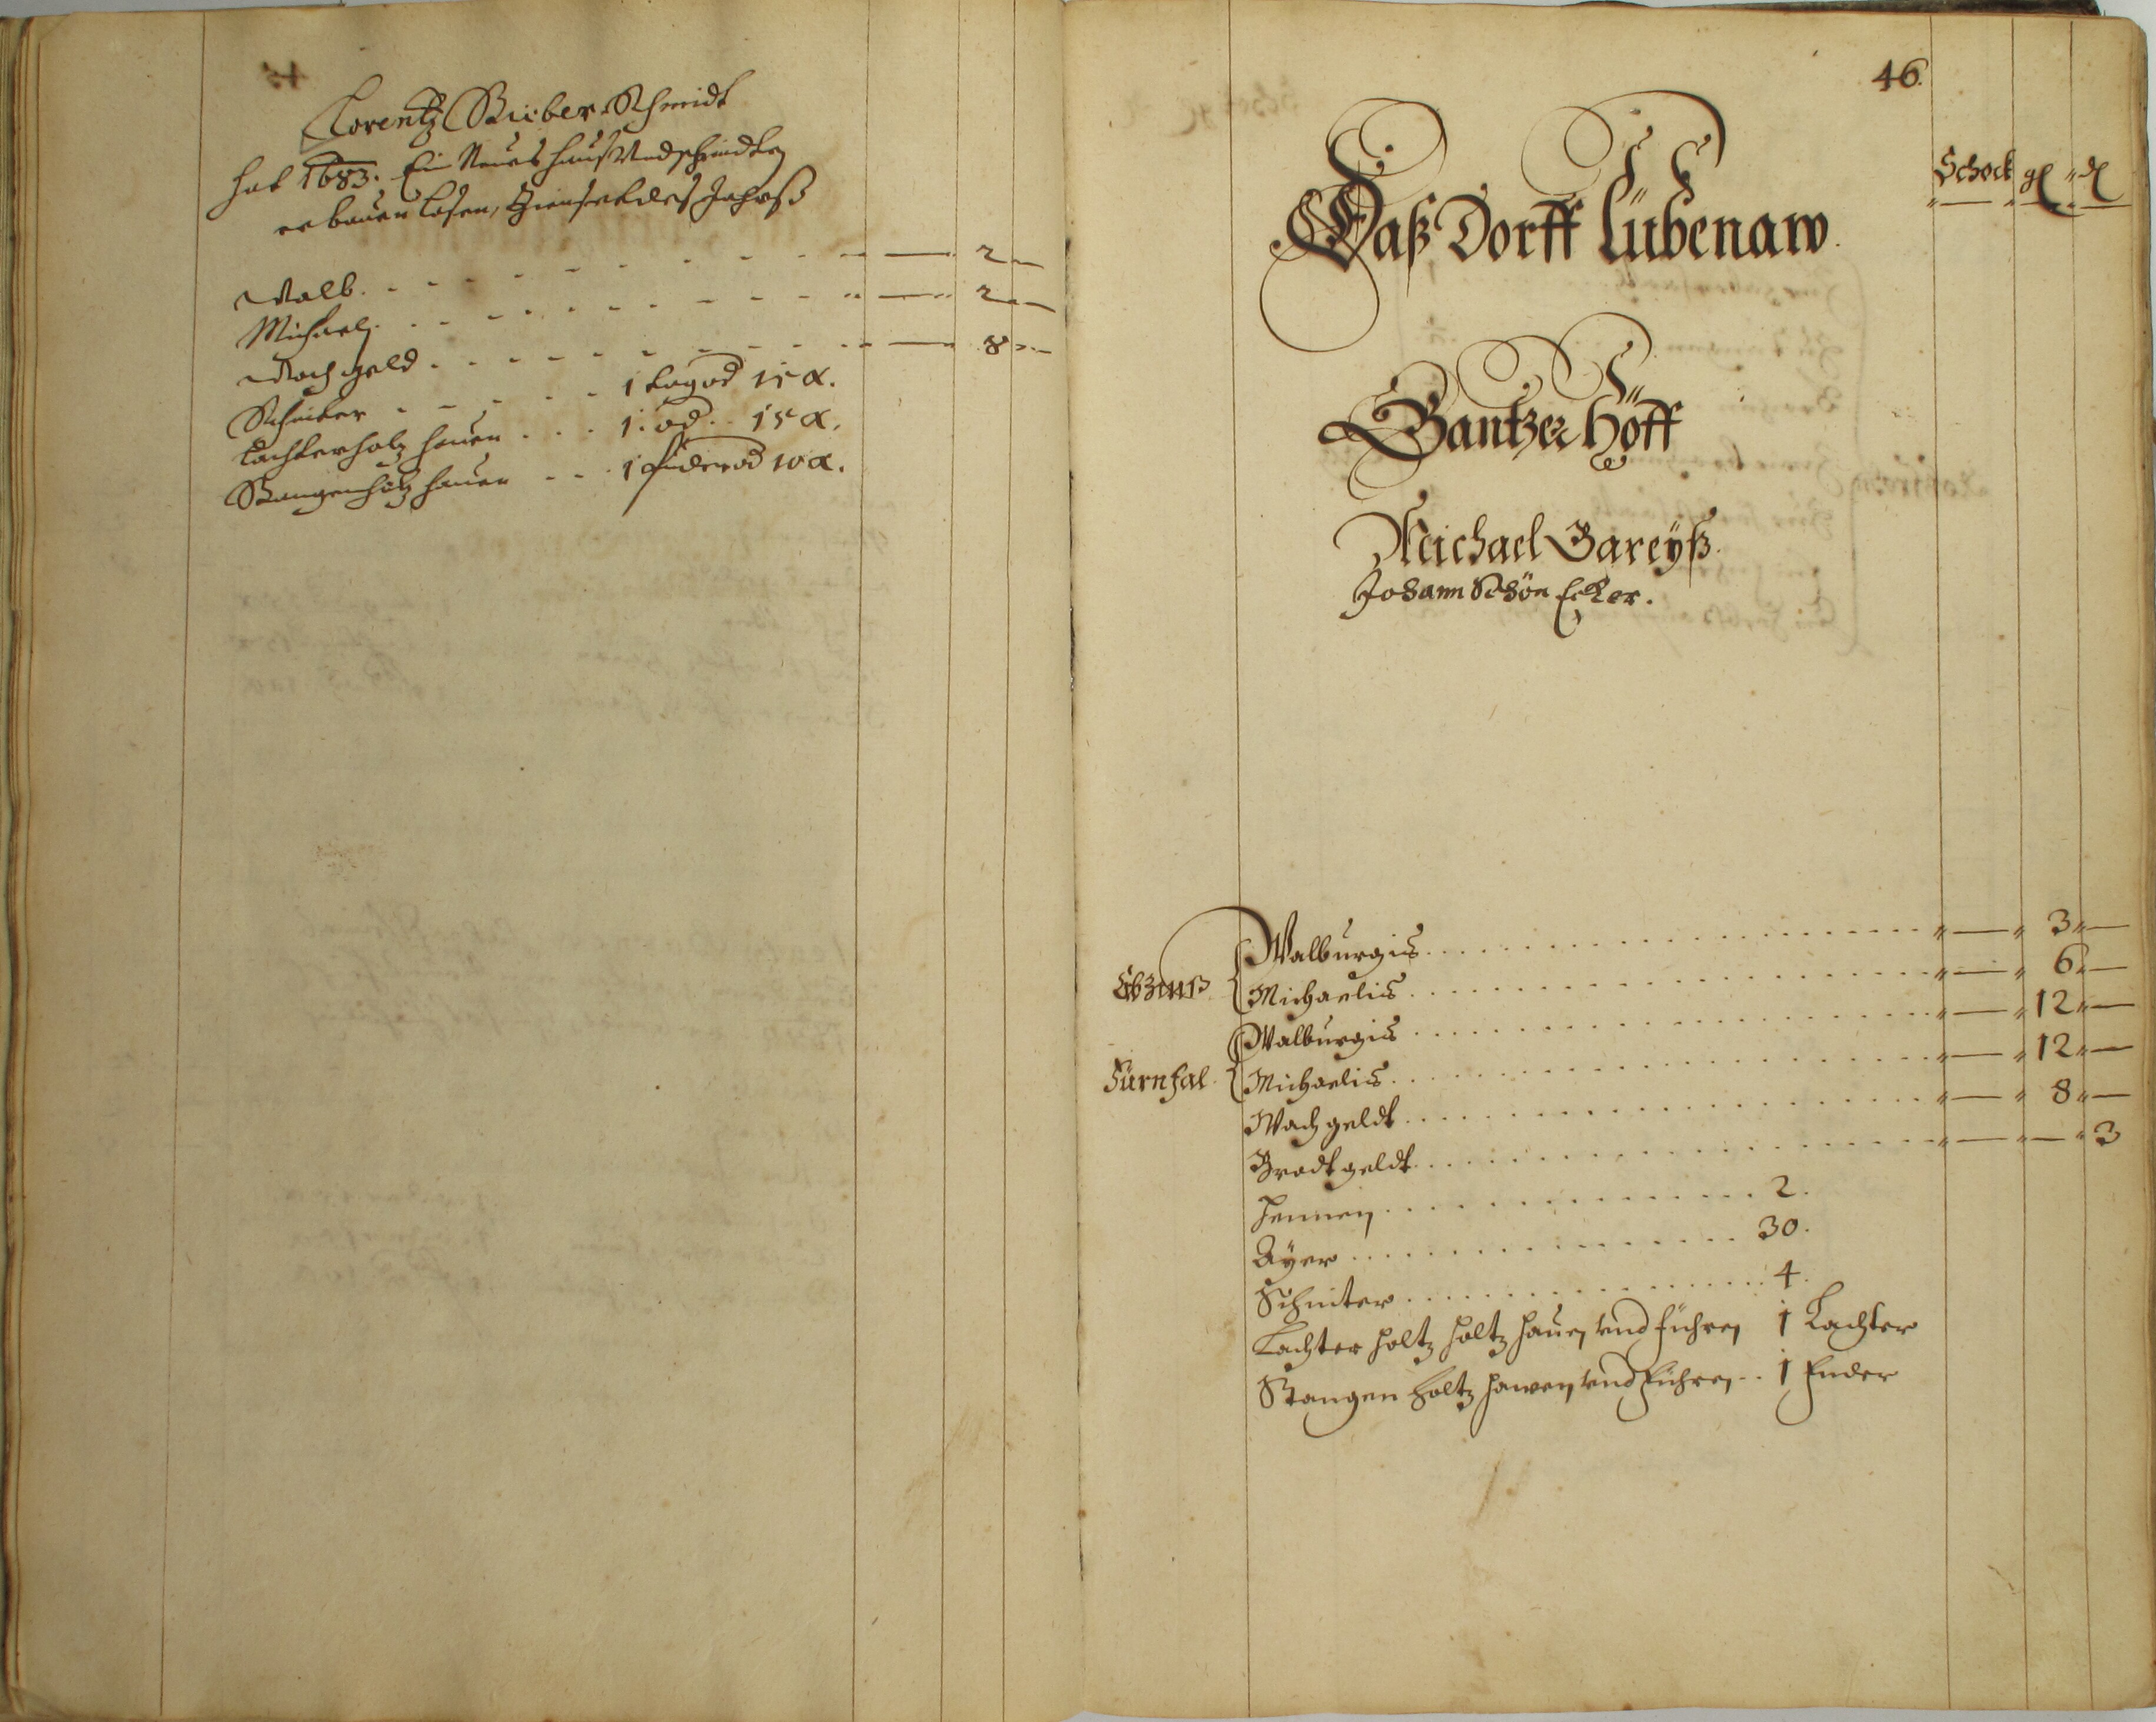 Lorentz Bieber Schmidt
hat 1683. Ein Neues Hauß Vnd schmidten
er bauen laßen, Zinset des Jahrs
Walb. - - - - - - - - — 2 —
Michaely. - - - - - - - — 2 —
Wachgeld - - - - - - - — 8 —
Schniter - - - - - 1 tag od 15 x.
Lachterholz hauen . . . 1. od. . 15 x.
Stangenholz hauen - - . 1 fuder od 10 x.
46.
Schock gl " d
Daß Dorff Lübenaw.
Gantzer Höff
Michael Bareÿß.
Johann Schön Ecker.
Erbzinß Walburgis . . . . . " — " 3 " —
Michaelis . . . . . " — " 6 " —
Walburgis . . . . . " — " 12 " —
Michaelis . . . . . " — " 12 " —
Wach geldt . . . . . " — " 8 " —
Brodt geldt . . . . . " — " — " 3
Hennen . . . . . 2.
Aÿer . . . . . 30.
Schniter . . . . . 4.
Lachter holtz holtz hauen vnd führen 1 Lachter
Stangen holtz hawen vnd führen . . 1 Fuder